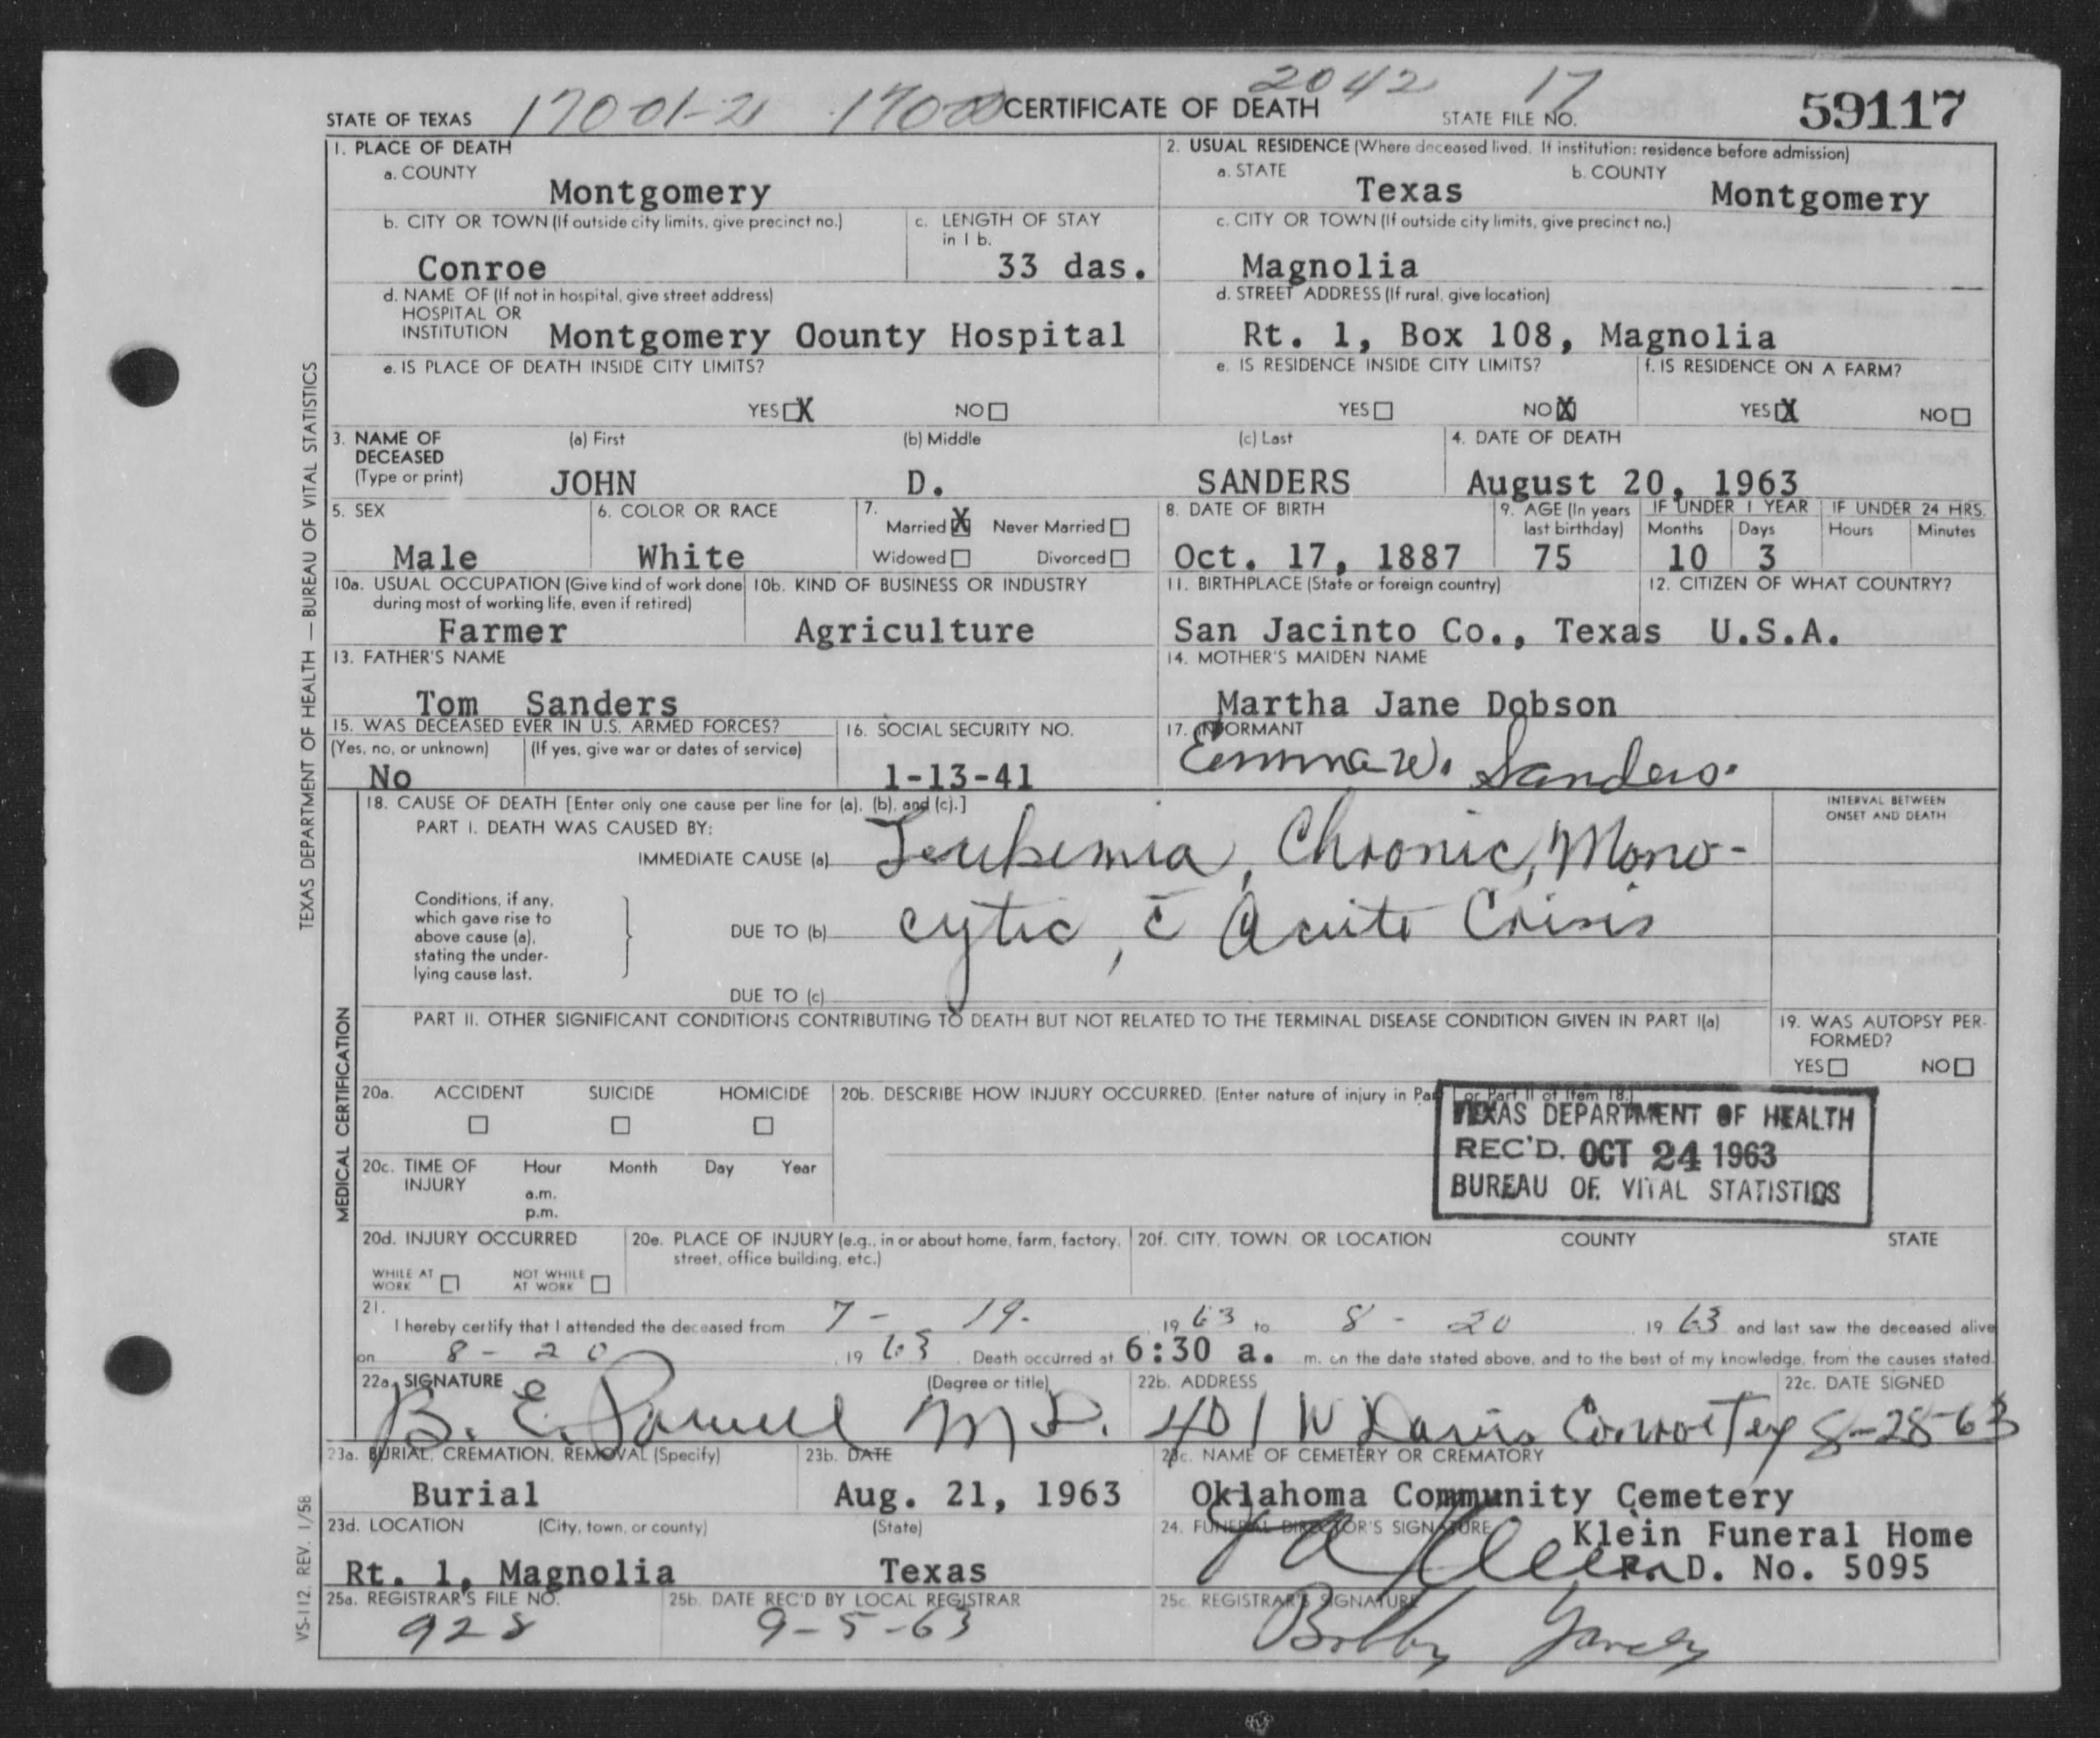 STATE OF TEXAS 17001-21 1700 CERTIFICATE OF DEATH 2042 17 STATE FILE NO. 59117
1. PLACE OF DEATH
a. COUNTY Montgomery
b. CITY OR TOWN (If outside city limits, give precinct no.) Conroe
c. LENGTH OF STAY in 1 b. 33 das.
d. NAME OF (If not in hospital, give street address) HOSPITAL OR INSTITUTION Montgomery County Hospital
e. IS PLACE OF DEATH INSIDE CITY LIMITS? YES X NO
2. USUAL RESIDENCE (Where deceased lived. If institution: residence before admission)
a. STATE Texas b. COUNTY Montgomery
c. CITY OR TOWN (If outside city limits, give precinct no.) Magnolia
d. STREET ADDRESS (If rural, give location) Rt. 1, Box 108, Magnolia
e. IS RESIDENCE INSIDE CITY LIMITS? YES NO X
f. IS RESIDENCE ON A FARM? YES X NO
3. NAME OF DECEASED (Type or print) (a) First JOHN (b) Middle D. (c) Last SANDERS
4. DATE OF DEATH August 20, 1963
5. SEX Male
6. COLOR OR RACE White
7. Married X Never Married Widowed Divorced
8. DATE OF BIRTH Oct. 17, 1887
9. AGE (In years last birthday) 75 IF UNDER 1 YEAR Months 10 Days 3 IF UNDER 24 HRS. Hours Minutes
10a. USUAL OCCUPATION (Give kind of work done during most of working life, even if retired) Farmer
10b. KIND OF BUSINESS OR INDUSTRY Agriculture
11. BIRTHPLACE (State or foreign country) San Jacinto Co., Texas
12. CITIZEN OF WHAT COUNTRY? U.S.A.
13. FATHER'S NAME Tom Sanders
14. MOTHER'S MAIDEN NAME Martha Jane Dobson
15. WAS DECEASED EVER IN U.S. ARMED FORCES? (Yes, no, or unknown) No (If yes, give war or dates of service)
16. SOCIAL SECURITY NO. 1-13-41
17. INFORMANT Emma W. Sanders.
18. CAUSE OF DEATH [Enter only one cause per line for (a), (b), and (c).]
PART I. DEATH WAS CAUSED BY:
IMMEDIATE CAUSE (a) Leukemia, Chronic, Mono-
Conditions, if any, which gave rise to above cause (a), stating the underlying cause last.
DUE TO (b) cytic, c̄ Acute Crisis
DUE TO (c)
INTERVAL BETWEEN ONSET AND DEATH
PART II. OTHER SIGNIFICANT CONDITIONS CONTRIBUTING TO DEATH BUT NOT RELATED TO THE TERMINAL DISEASE CONDITION GIVEN IN PART I(a)
19. WAS AUTOPSY PERFORMED? YES NO
20a. ACCIDENT SUICIDE HOMICIDE
20b. DESCRIBE HOW INJURY OCCURRED. (Enter nature of injury in Part I or Part II of Item 18.)
TEXAS DEPARTMENT OF HEALTH
REC'D. OCT 24 1963
BUREAU OF VITAL STATISTICS
20c. TIME OF INJURY Hour Month Day Year a.m. p.m.
20d. INJURY OCCURRED WHILE AT WORK NOT WHILE AT WORK
20e. PLACE OF INJURY (e.g., in or about home, farm, factory, street, office building, etc.)
20f. CITY, TOWN, OR LOCATION COUNTY STATE
21. I hereby certify that I attended the deceased from 7- 19. 1963 to 8 - 20 1963 and last saw the deceased alive
on 8-20, 1963. Death occurred at 6:30 a. m. on the date stated above, and to the best of my knowledge, from the causes stated.
22a. SIGNATURE (Degree or title) B. E. M D.
22b. ADDRESS 401 W Davis Conroe Tex
22c. DATE SIGNED 8-28-63
23a. BURIAL, CREMATION, REMOVAL (Specify) Burial
23b. DATE Aug. 21, 1963
23c. NAME OF CEMETERY OR CREMATORY Oklahoma Community Cemetery
23d. LOCATION (City, town, or county) (State) Rt. 1, Magnolia Texas
24. FUNERAL DIRECTOR'S SIGNATURE Klein Klein Funeral Home
D. No. 5095
25a. REGISTRAR'S FILE NO. 928
25b. DATE REC'D BY LOCAL REGISTRAR 9-5-63
25c. REGISTRAR'S SIGNATURE Bobby Yancey
TEXAS DEPARTMENT OF HEALTH — BUREAU OF VITAL STATISTICS
MEDICAL CERTIFICATION
VS-112. REV. 1/58